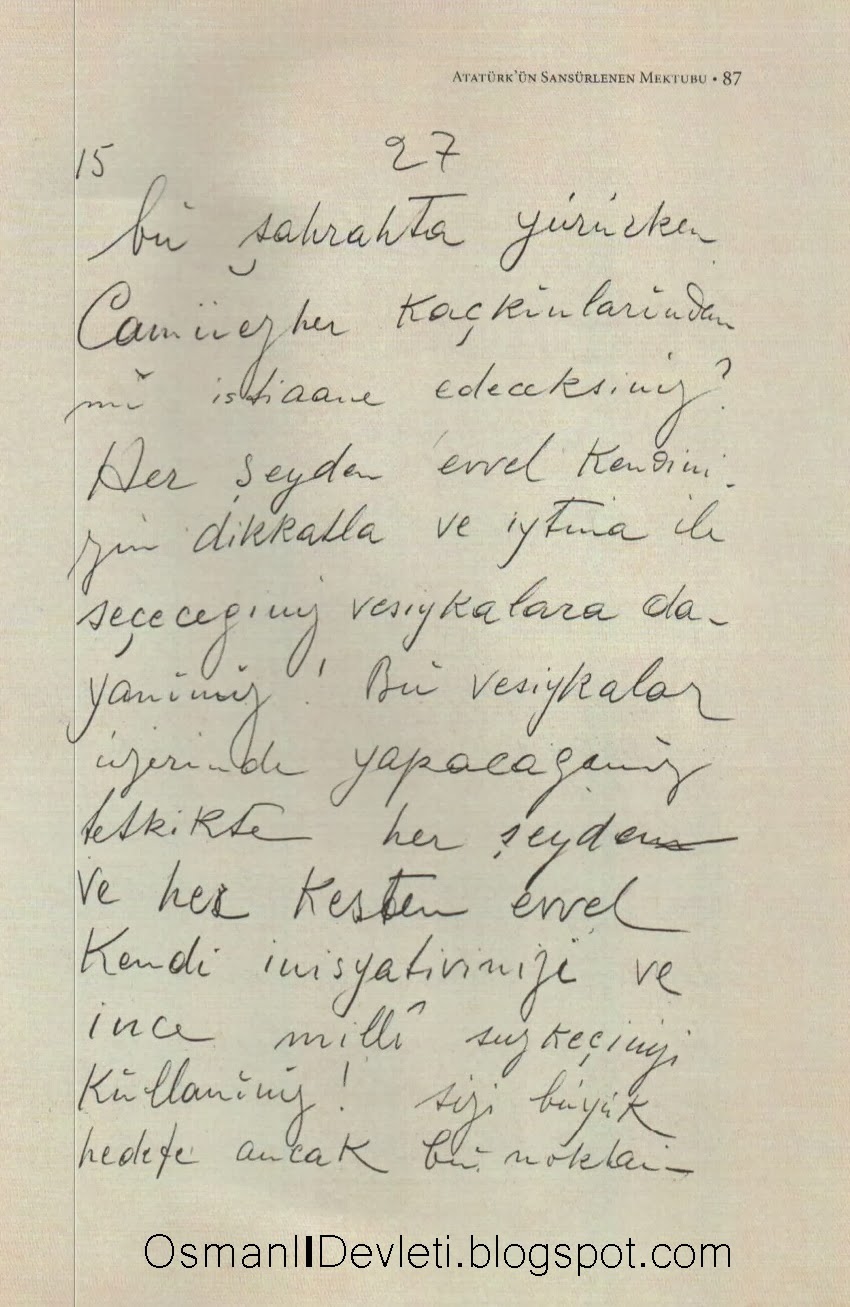 ATATÜRK'ÜN SANSÜRLENEN MEKTUBU • 87
15 27
bu şahrahta yürürken
Camiüezher kaçkinlarindan
mi istiaane edeceksiniz?
Her şeyden evvel kendini-
zin dikkatla ve iytina ile
seçeceginiz vesıykalara da-
yaniniz! Bu vesiykalar
üzerinde yapacaganiz
tetkikte her şeyden
ve her kesten evvel
Kendi inisyativinizi ve
ince millî suzkeçinizi
Kullaniniz! sizi büyük
hedefe ancak bu noktai-
OsmanlIDevleti.blogspot.com